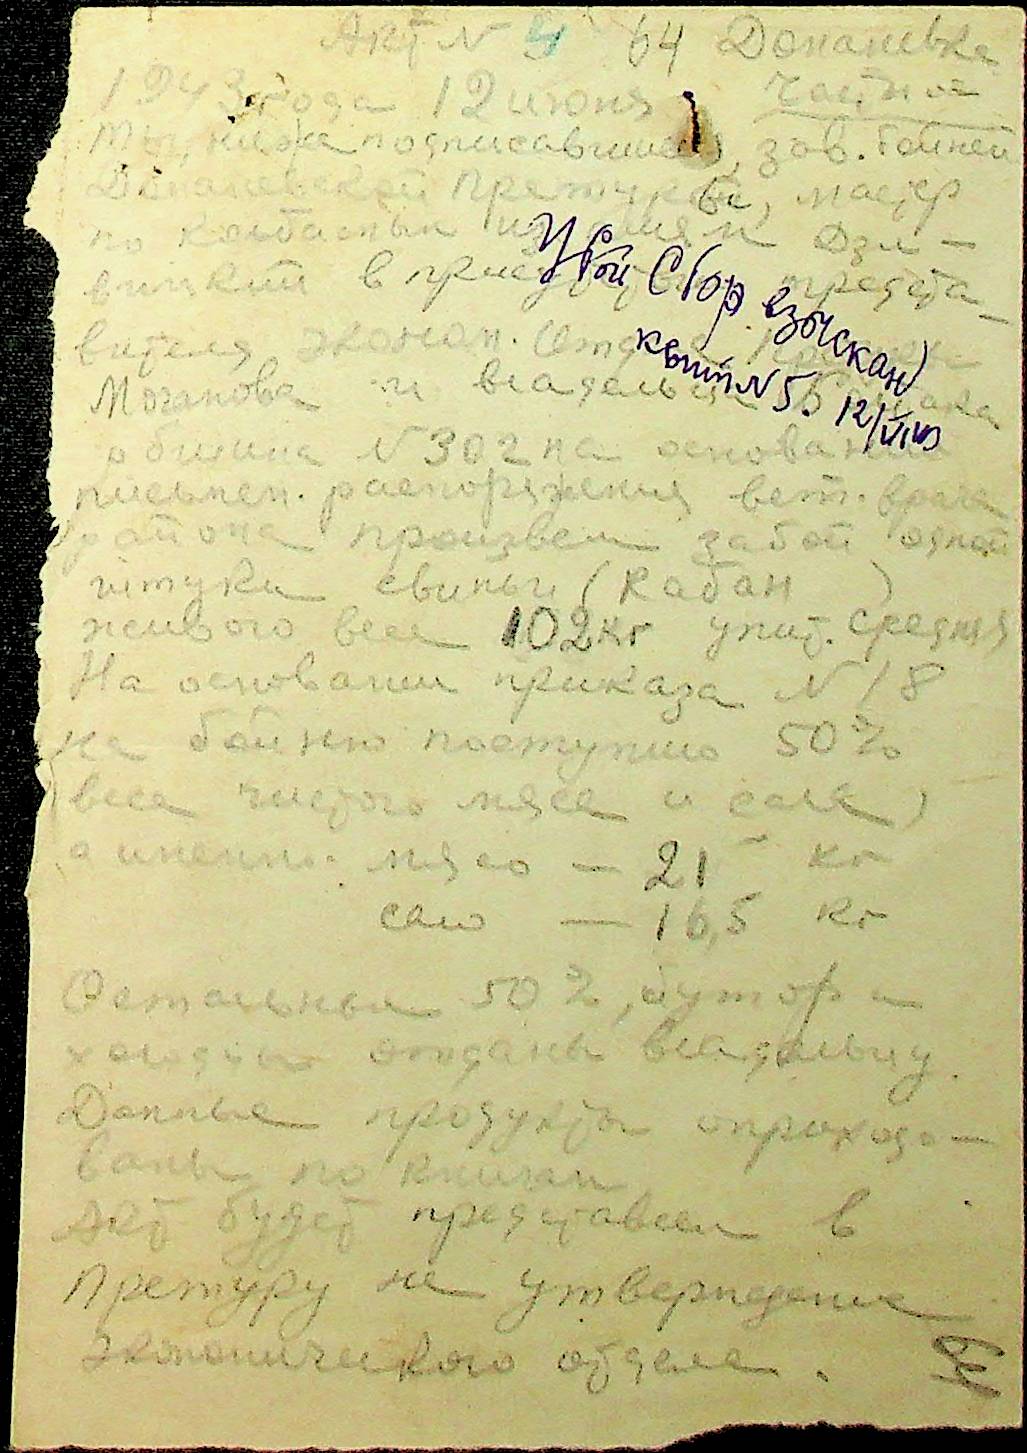 Акт N 4 64 Доманевка
1943 года 12 июня Частное
Мы, ниже подписавшиеся, зав. бойней
Доманевской Претуры, мастер
по колбасным изделиям
в присутствии предста-
вителя эконом. Отдела
Моганова и владельца
община N 302 на основании
письмен. распоряжения вет. врача
района произвели забой одной
штуки свиньи (Кабан )
живого веса 102 кг упит. средняя
На основании приказа N 18
на бойню поступило 50%
(веса чистого мяса и сала)
а именно: мясо — 21 кг
сало — 16,5 кг
Остальные 50%, бутор и
холодец отданы владельцу.
Данные продукты оприходо-
ваны по книгам
Акт будет представлен в
Претуру на утверждение
экономического отдела.
Убой Сбор взыскан
квит N 5. 12/VI 43